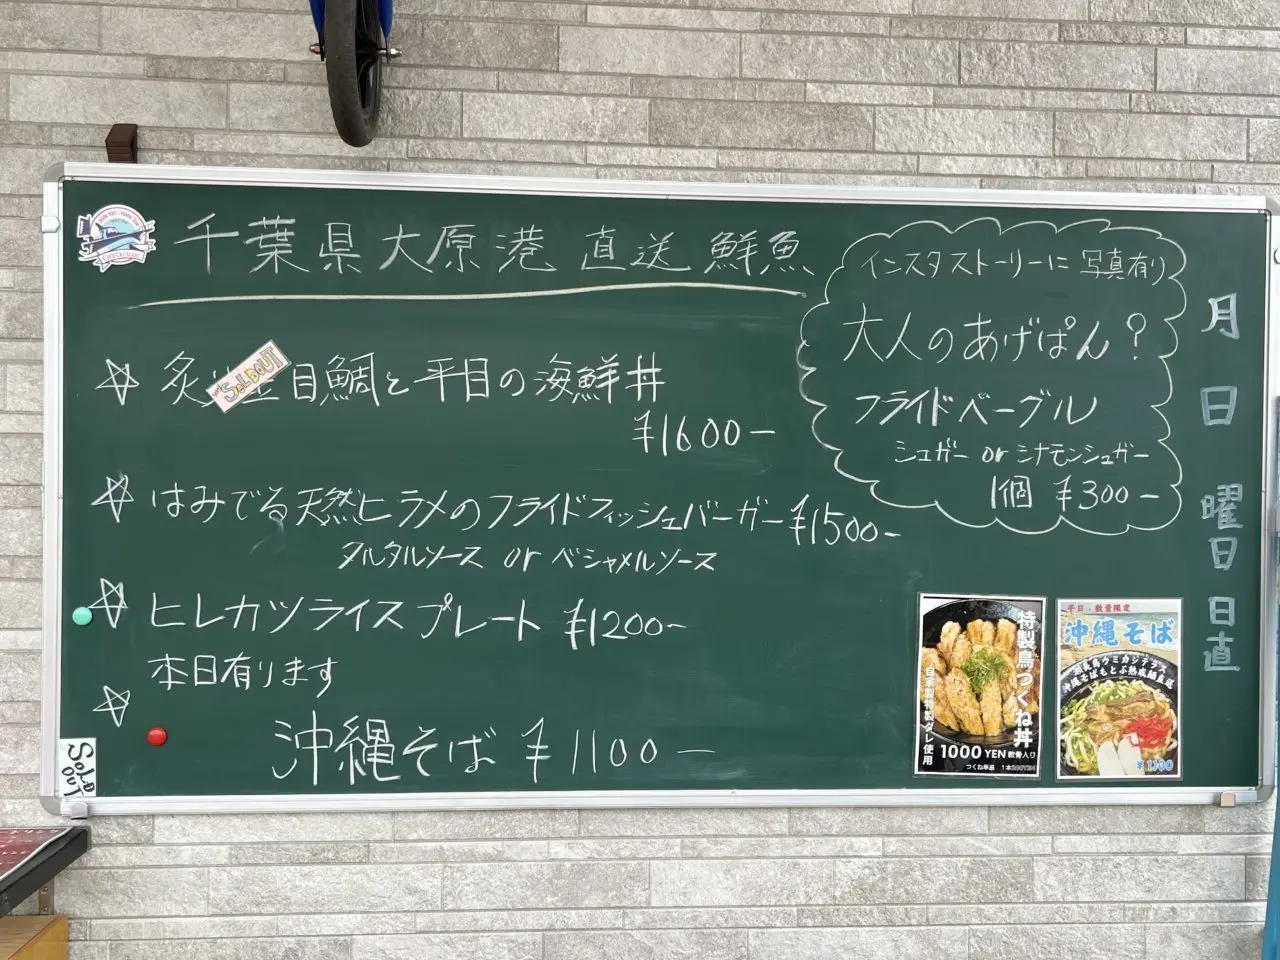 千葉県大原港 直送 鮮魚
☆ 炙り金目鯛と平目の海鮮丼
SOLDOUT
¥1600-
☆ はみでる天然ヒラメのフライドフィッシュバーガー ¥1500-
タルタルソース or ベシャメルソース
☆ ヒレカツライスプレート ¥1200-
本日有ります
☆ 沖縄そば ¥1100-
SOLD OUT
インスタストーリーに 写真有り
大人のあげぱん?
フライドベーグル
シュガー or シナモンシュガー
1個 ¥300-
月
日
曜日
日直
特製鳥つくね丼
自家製特製ダレ使用
1000YEN 軟骨入り
つくね単品
平日・数量限定
沖縄そば
沖縄そばもとぶ熟成麺直送
¥1100